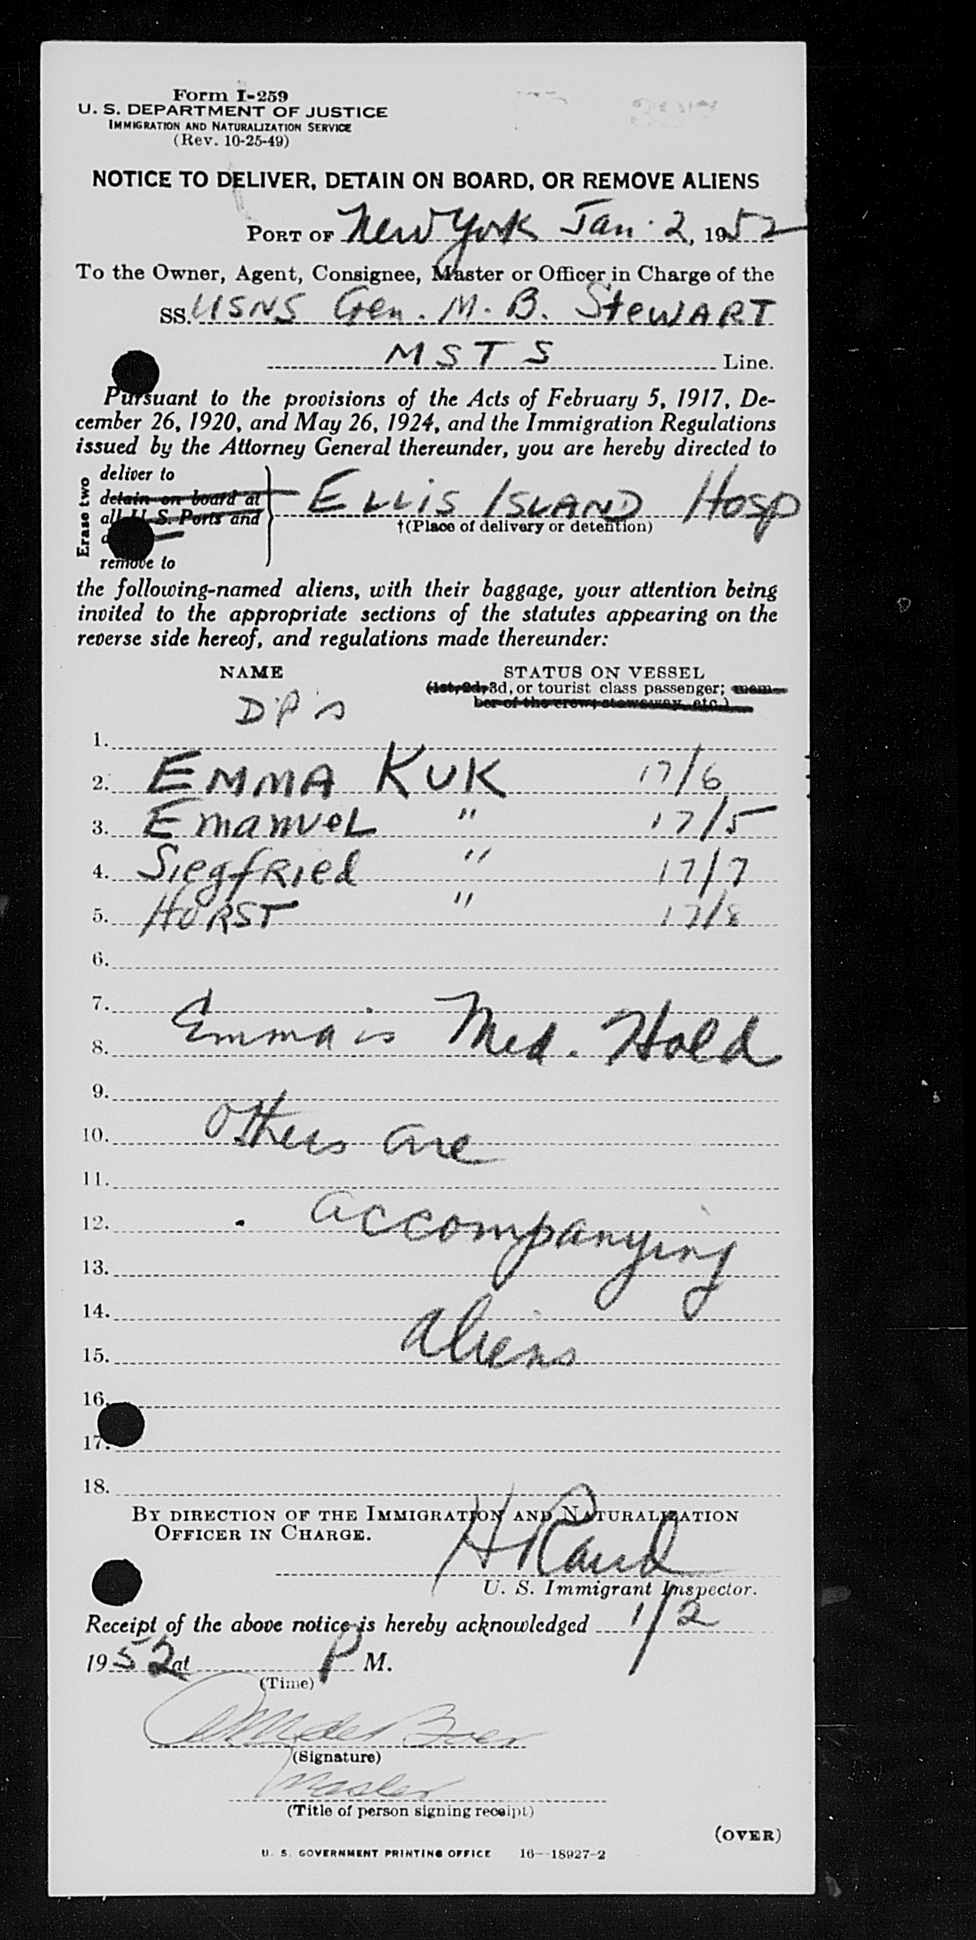 Form I-259
U. S. DEPARTMENT OF JUSTICE
IMMIGRATION AND NATURALIZATION SERVICE
(Rev. 10-25-49)
NOTICE TO DELIVER, DETAIN ON BOARD, OR REMOVE ALIENS
PORT OF New York Jan. 2, 1952
To the Owner, Agent, Consignee, Master or Officer in Charge of the
SS. USNS Gen. M. B. Stewart
MSTS Line.
Pursuant to the provisions of the Acts of February 5, 1917, De-
cember 26, 1920, and May 26, 1924, and the Immigration Regulations
issued by the Attorney General thereunder, you are hereby directed to
Erase two
deliver to
detain on board at
all U. S. Ports and
remove to
ELLIS ISLAND Hosp
†(Place of delivery or detention)
the following-named aliens, with their baggage, your attention being
invited to the appropriate sections of the statutes appearing on the
reverse side hereof, and regulations made thereunder:
NAME STATUS ON VESSEL
(1st, 2d, 3d, or tourist class passenger; mem-
ber of the crew, stowaway, etc.)
DP's
1.
2. EMMA KUK 17/6
3. Emanuel " 17/5
4. Siegfried " 17/7
5. HORST " 17/8
6.
7.
8. Emma is Med. Hold
9.
10. others are
11.
12. accompanying
13.
14.
15. aliens
16.
17.
18.
BY DIRECTION OF THE IMMIGRATION AND NATURALIZATION
OFFICER IN CHARGE.
H Rand
U. S. Immigrant Inspector.
Receipt of the above notice is hereby acknowledged 1/2
1952 at P M.
(Time)
(Signature)
Master
(Title of person signing receipt)
(OVER)
U. S. GOVERNMENT PRINTING OFFICE 16—18927-2